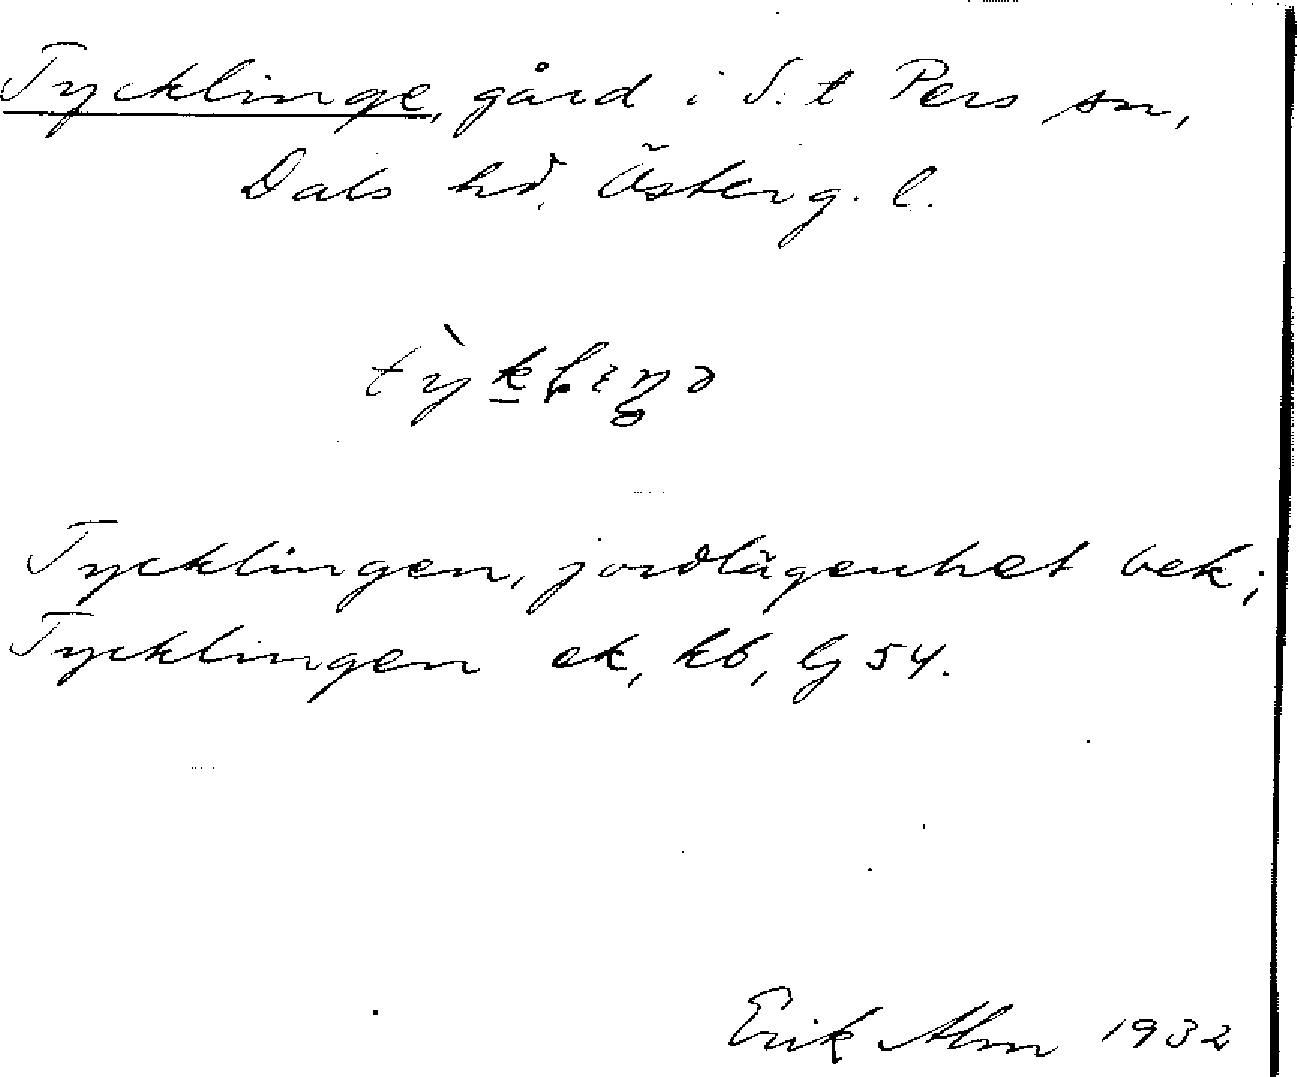 Tycklinge, gård i S:t Pers sn,
Dals hd, Österg. l.
Tycklingen, jordlägenhet bek;
Tycklingen ek, kb, Lg 54.
Erik Alm 1932